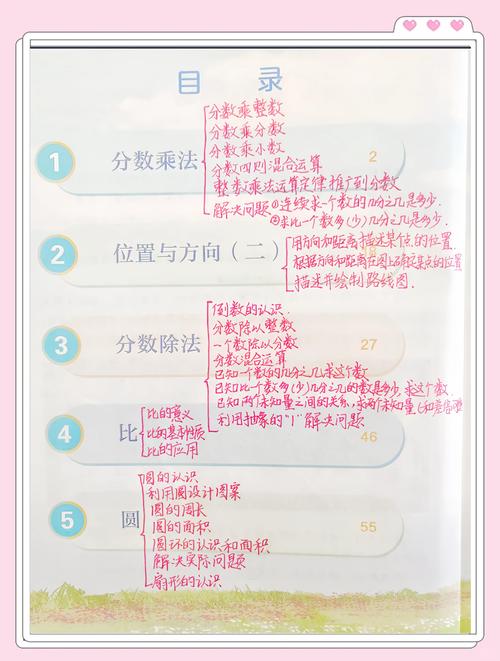 目 录
1 分数乘法 2
分数乘整数
分数乘分数
分数乘小数
分数四则混合运算
整数乘法运算定律推广到分数
解决问题①连续求一个数的几分之几是多少.
②求比一个数多(少)几分之几是多少.
2 位置与方向（二）
用方向和距离描述某点的位置.
根据方向和距离在图上确定某点的位置
描述并绘制路线图.
3 分数除法 27
倒数的认识.
分数除以整数
一个数除以分数
分数混合运算
已知一个数的几分之几求这个数
已知比一个数多(少)几分之几的数是多少,求这个数.
已知两个未知量之间的关系,求两个未知量(和差倍
利用抽象的"1"解决问题
4 比 46
比的意义
比的基本性质
比的应用
5 圆 55
圆的认识
利用圆设计图案
圆的周长
圆的面积
圆环的认识和面积
解决实际问题
扇形的认识